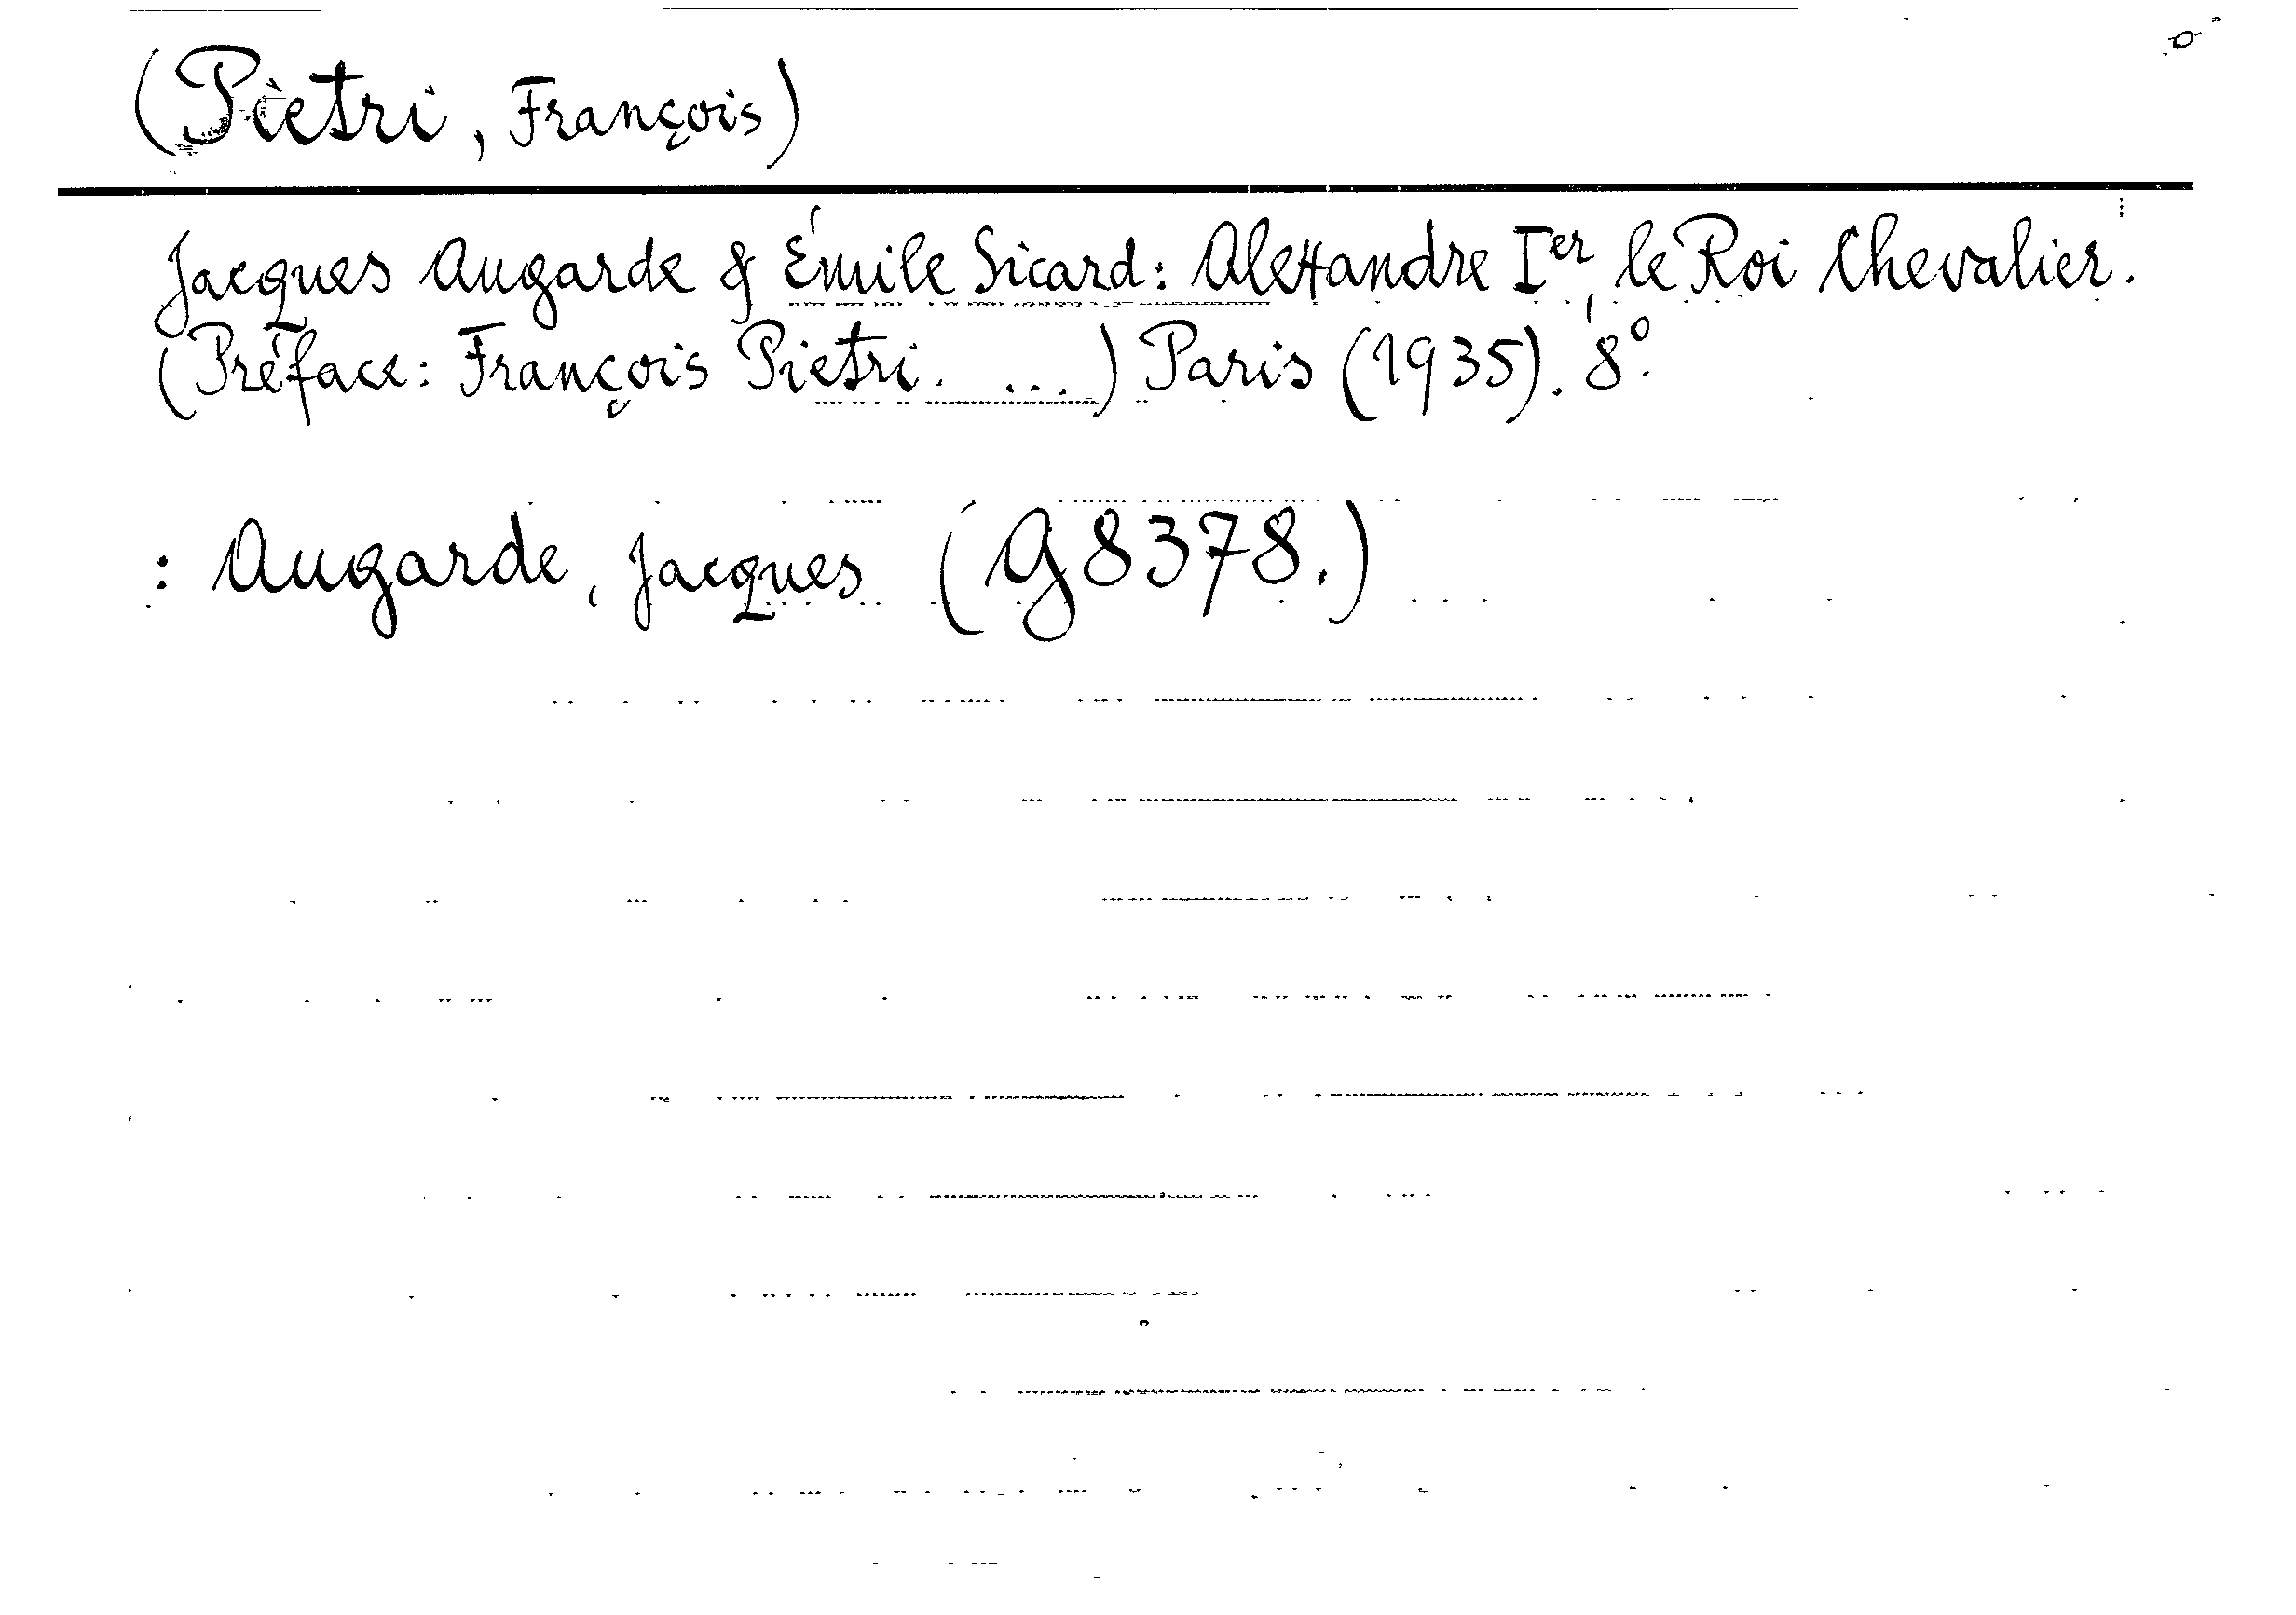 (Pietri, François)
Jacques Augarde & Émile Sicard: Alexandre Ier, le Roi Chevalier.
(Préface: François Pietri. ...) Paris (1935). 8°.
: Augarde, Jacques (G 8378.)